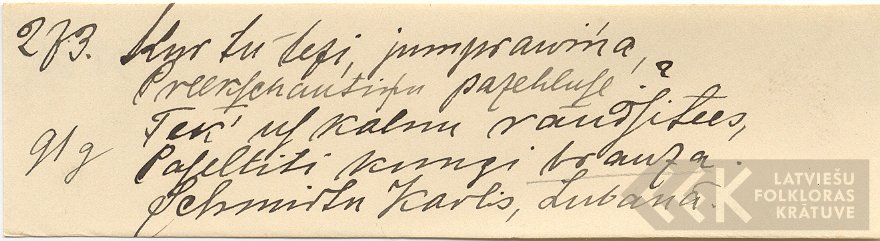 273. Kur tu tezi, jumprawiņa,
Preekschautiņu pazehluse?
Tek' us kalnu raudsitees,
91g Pazeltiti kungi brauza.
Schmidtu Karlis, Lubānā.
LATVIEŠU
FOLKLORAS
KRĀTUVE